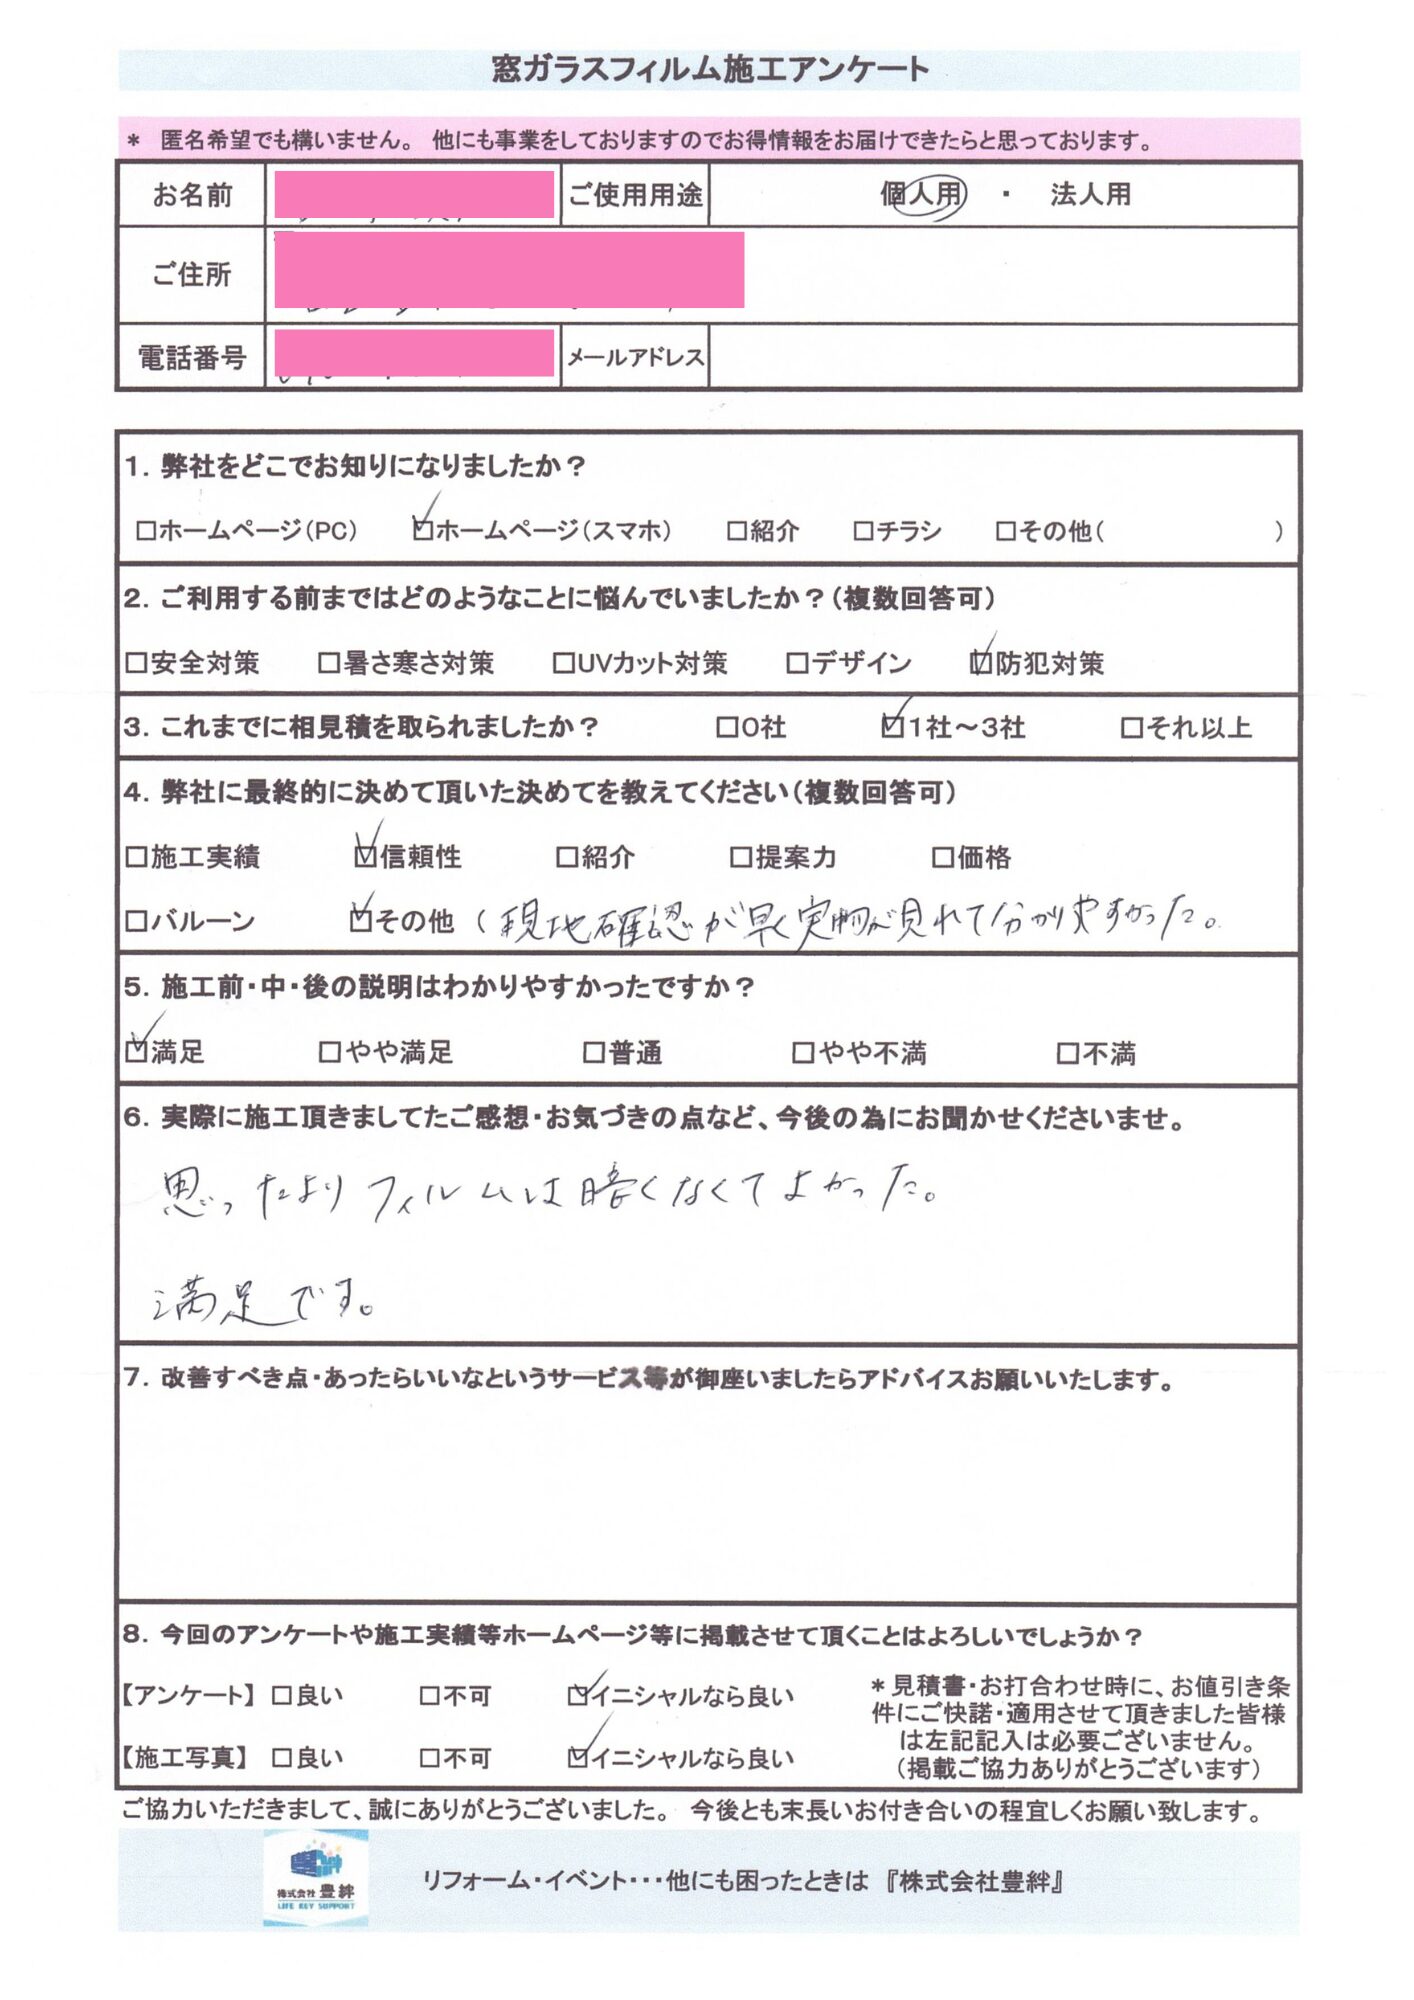 窓ガラスフィルム施工アンケート
* 匿名希望でも構いません。 他にも事業をしておりますのでお得情報をお届けできたらと思っております。
お名前 ご使用用途 個人用 ・ 法人用
ご住所
電話番号 メールアドレス
1. 弊社をどこでお知りになりましたか?
□ホームページ(PC) ☑ホームページ(スマホ) □紹介 □チラシ □その他( )
2. ご利用する前まではどのようなことに悩んでいましたか?(複数回答可)
□安全対策 □暑さ寒さ対策 □UVカット対策 □デザイン ☑防犯対策
3. これまでに相見積を取られましたか? □0社 ☑1社~3社 □それ以上
4. 弊社に最終的に決めて頂いた決めてを教えてください(複数回答可)
□施工実績 ☑信頼性 □紹介 □提案力 □価格
□バルーン ☑その他 (現地確認が早く実物が見れて分かりやすかった。
5. 施工前・中・後の説明はわかりやすかったですか?
☑満足 □やや満足 □普通 □やや不満 □不満
6. 実際に施工頂きましてたご感想・お気づきの点など、今後の為にお聞かせくださいませ。
思ったよりフィルムは暗くなくてよかった。
満足です。
7. 改善すべき点・あったらいいなというサービス等が御座いましたらアドバイスお願いいたします。
8. 今回のアンケートや施工実績等ホームページ等に掲載させて頂くことはよろしいでしょうか?
【アンケート】 □良い □不可 ☑イニシャルなら良い
【施工写真】 □良い □不可 ☑イニシャルなら良い
*見積書・お打合わせ時に、お値引き条
件にご快諾・適用させて頂きました皆様
は左記記入は必要ございません。
(掲載ご協力ありがとうございます)
ご協力いただきまして、誠にありがとうございました。 今後とも末長いお付き合いの程宜しくお願い致します。
株式会社 豊絆
LIFE KEY SUPPORT
リフォーム・イベント・・・他にも困ったときは 『株式会社豊絆』